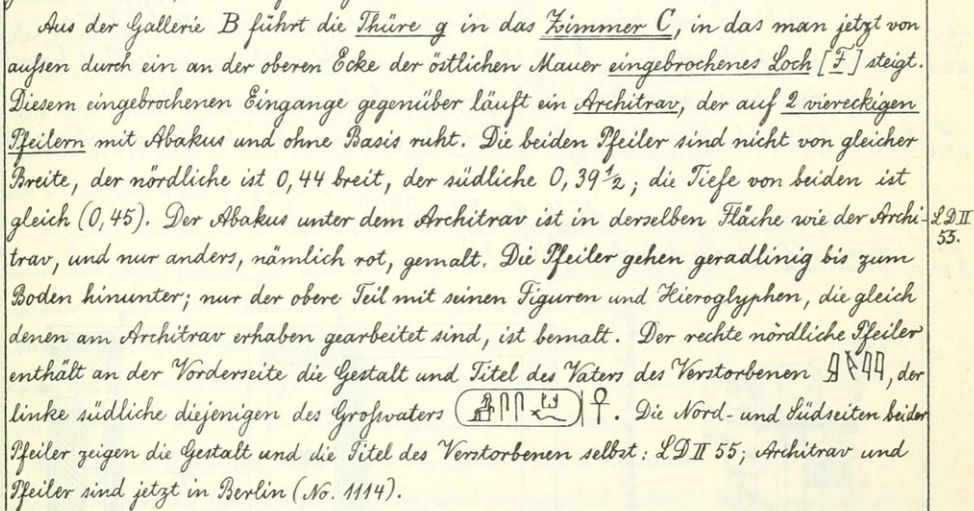 Aus der Gallerie B führt die Thüre g in das Zimmer C, in das man jetzt von
außen durch ein an der oberen Ecke der östlichen Mauer eingebrochenes Loch [F] steigt.
Diesem eingebrochenen Eingange gegenüber läuft ein Architrav, der auf 2 viereckigen
Pfeilern mit Abakus und ohne Basis ruht. Die beiden Pfeiler sind nicht von gleicher
Breite, der nördliche ist 0,44 breit, der südliche 0,39½; die Tiefe von beiden ist
gleich (0,45). Der Abakus unter dem Architrav ist in derselben Fläche wie der Archi-
LD II
55.
trav, und nur anders, nämlich rot, gemalt. Die Pfeiler gehen geradlinig bis zum
Boden hinunter; nur der obere Teil mit seinen Figuren und Hieroglyphen, die gleich
denen am Architrav erhaben gearbeitet sind, ist bemalt. Der rechte nördliche Pfeiler
enthält an der Vorderseite die Gestalt und Titel des Vaters des Verstorbenen, der
linke südliche diejenigen des Großvaters. Die Nord- und Südseiten beider
Pfeiler zeigen die Gestalt und die Titel des Verstorbenen selbst: LD II 55; Architrav und
Pfeiler sind jetzt in Berlin (No. 1114).